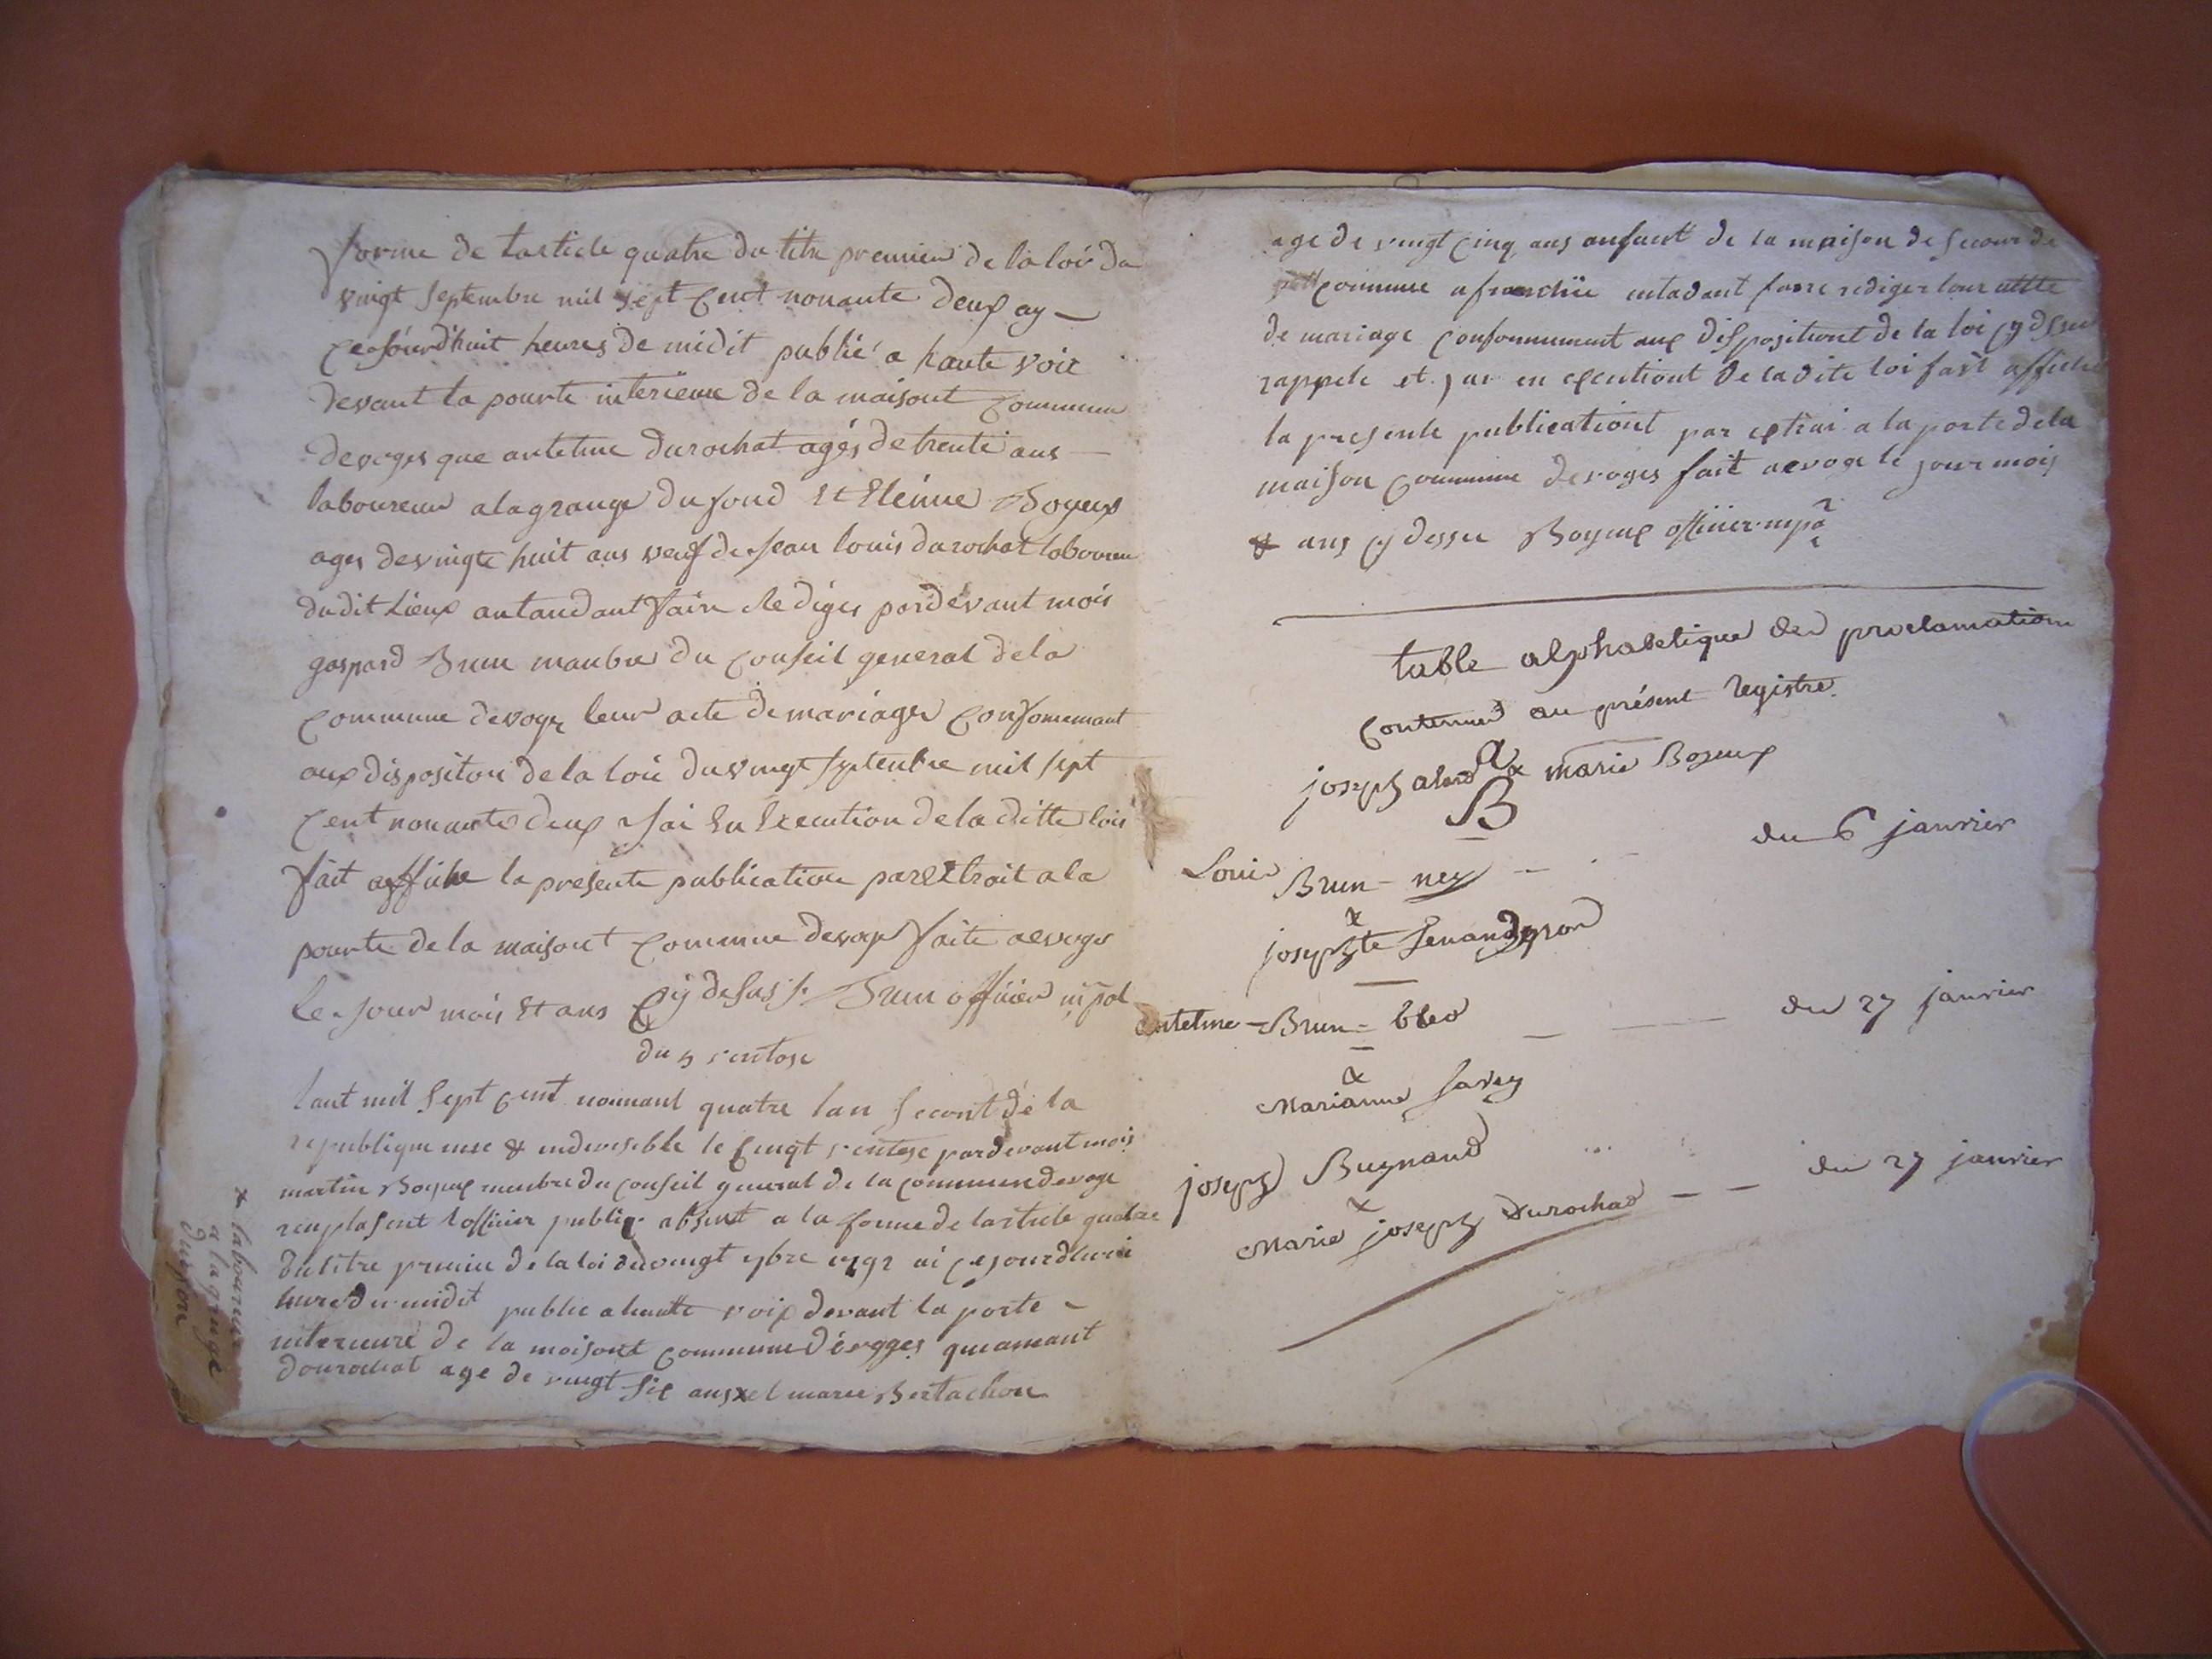 forme de lasticle quatre du titre premier de la loi du
vingt septembre mil sept cent nonante deux ay
cejourd'huit heures de midit publié a haute voix
devant la pourte interieure de la maisont commune
devoges que antelme durochat agés de trente ans
laboureur a la grange du fond et Etiénne Boyeux
ages devingte huit ans veuf de Jean louis durochat laboureur
dudit Lieux antandant faire Rediger pardevant mois
gaspard Brun manbre du conseil general de la
commune devoge leur acte de mariages conformemant
aux disposition de la loie du vingt septenbre mil sept
cent nonante deux Jai En Execution de la ditte lois
fait affiche la presente publication par Extrait a la
pourte de la maisont commune devoge faite a evoges
le jour mois Et ans cy desus Brun officier
du 5 ventose
lant mil sept cent nonnant quatre lan secont de la
republique une & indivisible le cinqt ventose pardevant mois
martin Boyeux menbre du conseil general de la commune devoge
renplasent lofficier public absent a la forme de larticle quatre
du titre premier de la loi du vingt 7bre 1792 ai cejourdhuit
hure de midit public a hautte voix devant la porte
interieure de la maisont commune dévoges que amant
dourochat age de vingt six ans x et marie Bertachon
x laboureur
a la grange
du fon
age de vingt cinq ans anfant de la maison de secour de
commune afranchie entadant faire rediger leur actte
de mariage conformement aux dispositiont de la loi cy dessu
rappele et jai en executiont de ladite loi fait affiche
la presente publicationt par extrai a la porte de la
maison commune devoges fait a evoge le jour mois
& ans cy dessu Boyeux officier
table alphabetique des proclamations
contenues au présent Registre.
a
joseph & marie Bozeux
B
Louis Brun-ney — du 6 janvier
&
josephte
antelme Brun = — du 27 janvier
&
Marianne Savey
joseph Bugnand
&
Marie joseph Durochat — du 27 janvier